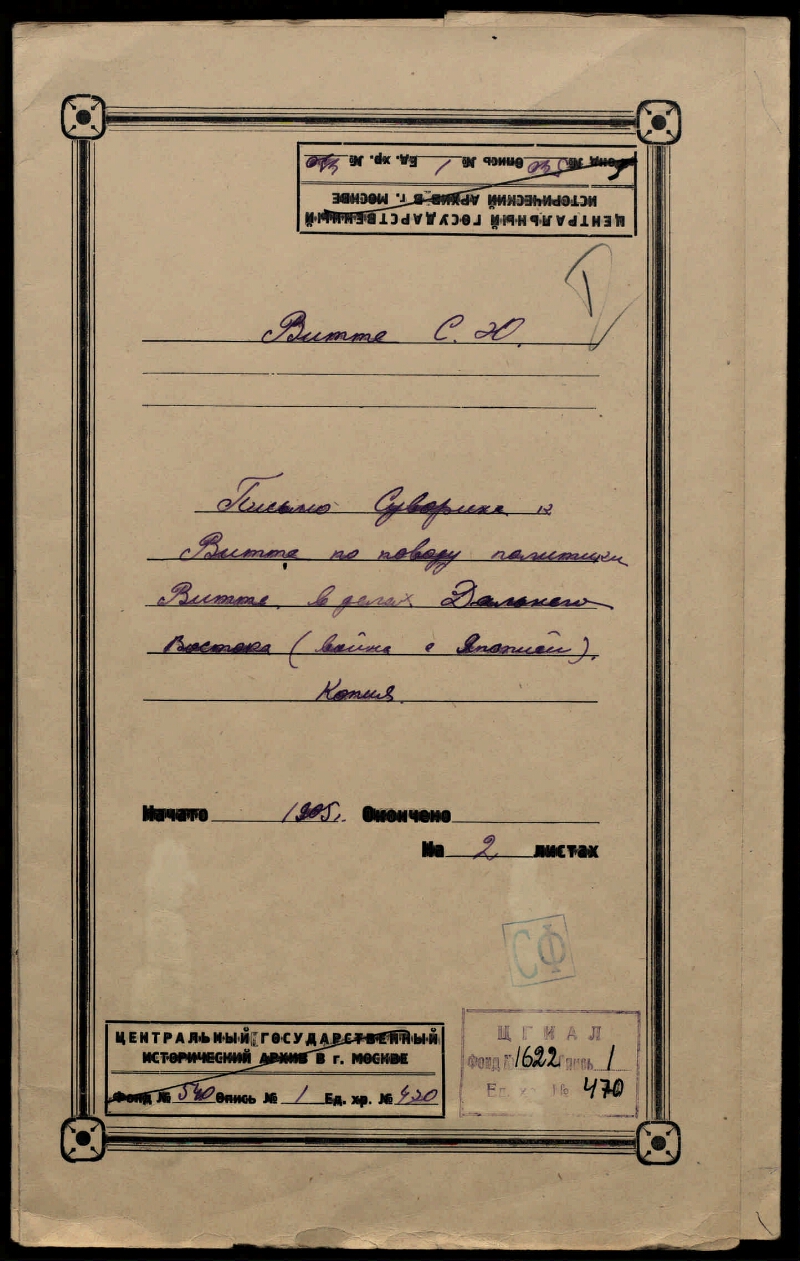 Фонд № Опись № 1 Ед. хр. №
ЦЕНТРАЛЬНЫЙ ГОСУДАРСТВЕННЫЙ
ИСТОРИЧЕСКИЙ АРХИВ В г. МОСКВЕ
Витте С. Ю.
Письмо Суворина к
Витте по поводу политики
Витте в делах Дальнего
Востока (война с Японией).
Копия.
Начато 1905г. Окончено
На 2 листах
СФ
ЦЕНТРАЛЬНЫЙ ГОСУДАРСТВЕННЫЙ
ИСТОРИЧЕСКИЙ АРХИВ В г. МОСКВЕ
Фонд № 540 Опись № 1 Ед. хр. № 420
ЦГИАЛ
Фонд № 1622 Опись 1
Ед. хр. № 470